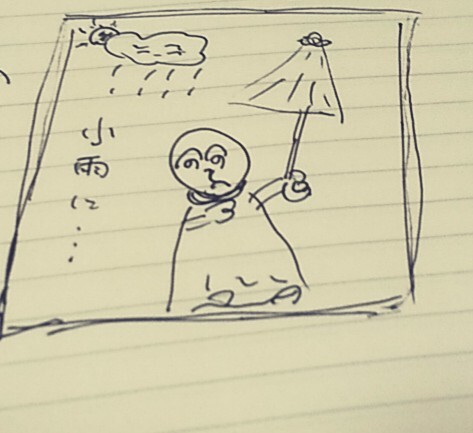 小雨に...